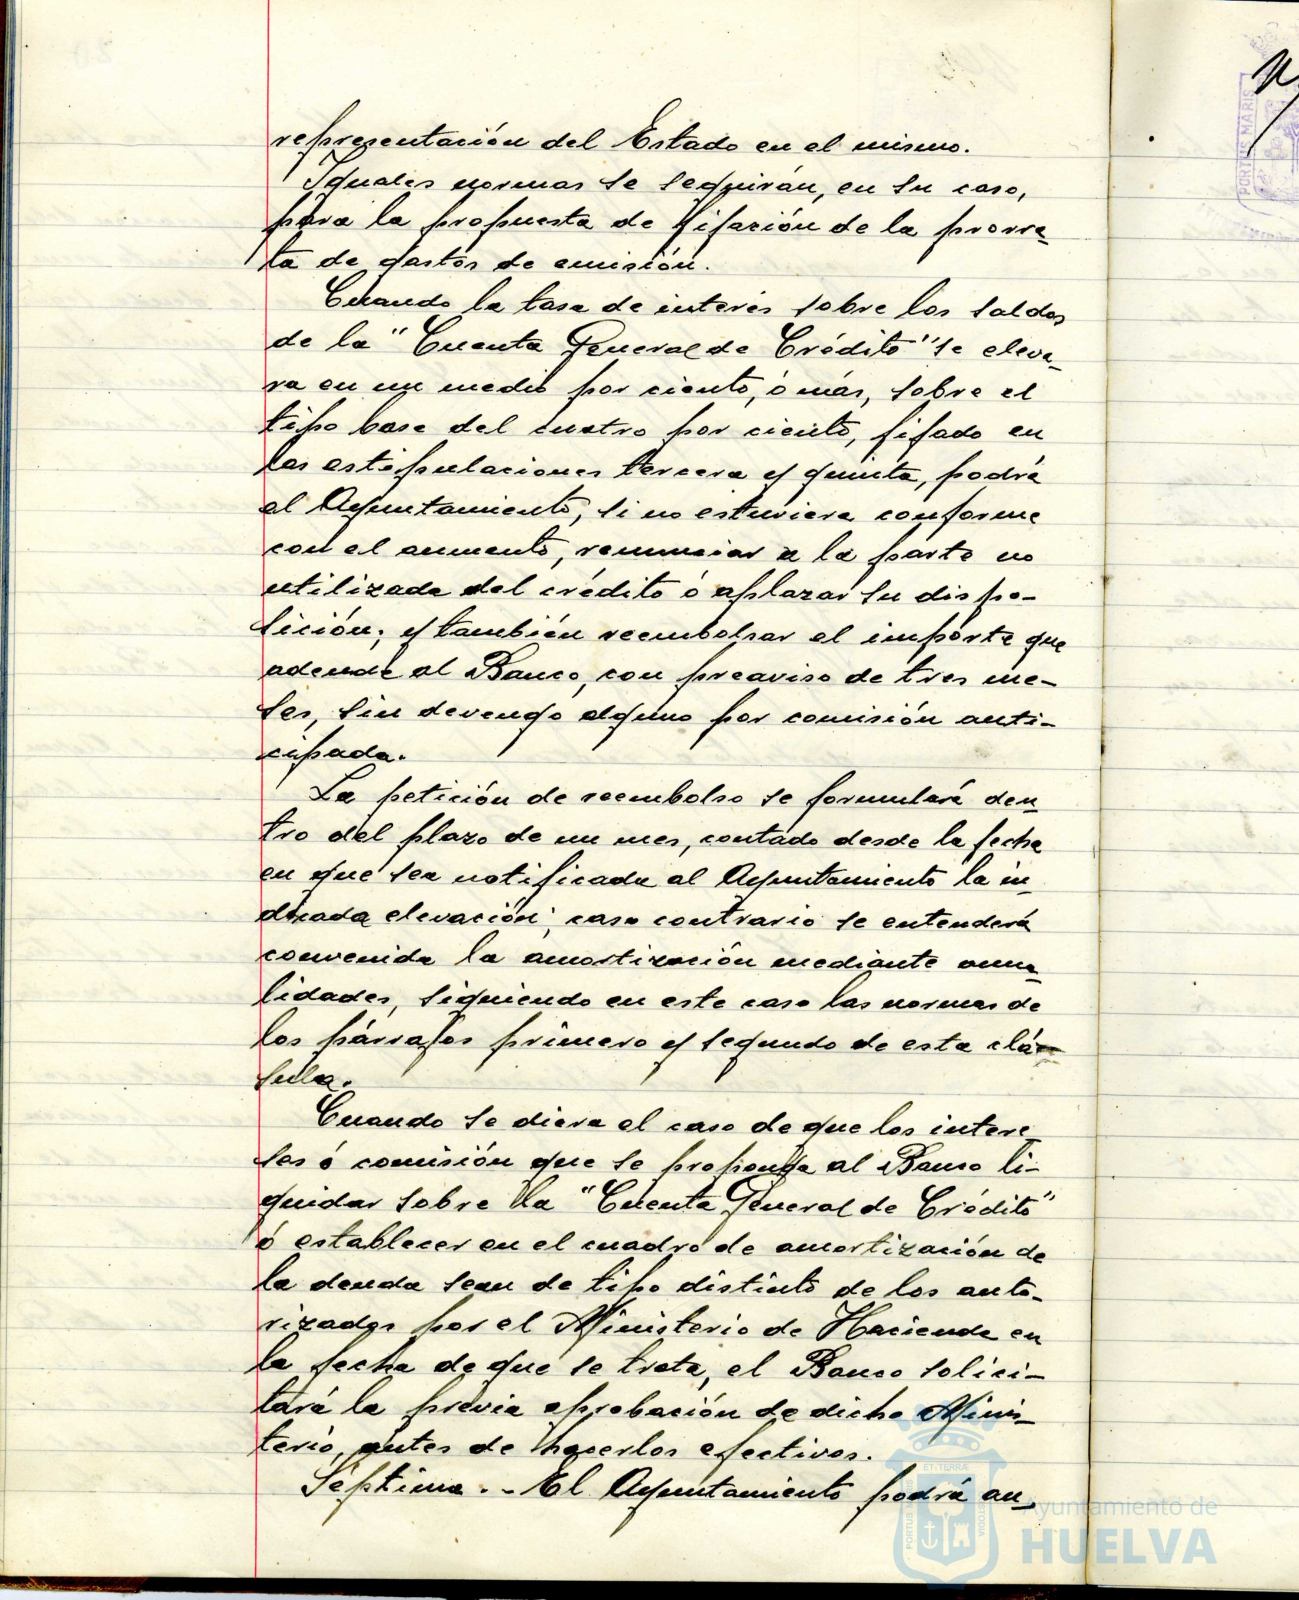 representación del Estado en el mismo.
Iguales normas se seguirán, en su caso,
para la propuesta de fijación de la prorra-
ta de gastos de emisión.
Cuando la tasa de interés sobre los saldos
de la "Cuenta General de Crédito" se eleva-
ra en un medio por ciento, ó más, sobre el
tipo base del cuatro por ciento, fijado en
las estipulaciones tercera y quinta, podrá
el Ayuntamiento, si no estuviera conforme
con el aumento, renunciar a la parte no
utilizada del crédito ó aplazar su dispo-
sición; y también reembolsar el importe que
adeude al Banco, con preaviso de tres me-
ses, sin devengo alguno por comisión anti-
cipada.
La petición de reembolso se formulará den-
tro del plazo de un mes, contado desde la fecha
en que sea notificada al Ayuntamiento la in-
dicada elevación; caso contrario se entenderá
convenida la amortización mediante anua-
lidades, siguiendo en este caso las normas de
los párrafos primero y segundo de esta cláu-
sula.
Cuando se diera el caso de que los intere-
ses ó comisión que se proponga al Banco li-
quidar sobre la "Cuenta General de Crédito"
ó establecer en el cuadro de amortización de
la deuda sean de tipo distinto de los auto-
rizados por el Ministerio de Hacienda en
la fecha de que se trata, el Banco solici-
tará la previa aprobación de dicho Minis-
terio, antes de hacerlos efectivos.
Séptima.- El Ayuntamiento podrá an-
PORTUS MARIS
ET TERRÆ
CUSTODIA
Ayuntamiento de
HUELVA